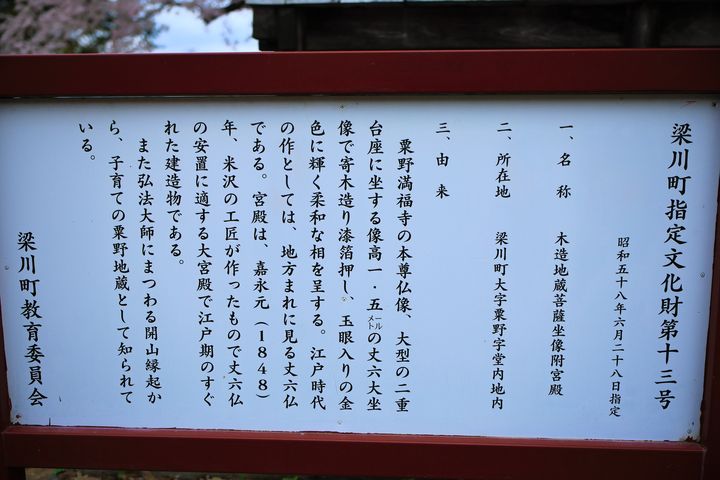 梁川町指定文化財第十三号
昭和五十八年六月二十八日指定
一、名称 木造地蔵菩薩坐像附宮殿
二、所在地 梁川町大字粟野字堂内地内
三、由来
粟野満福寺の本尊仏像、大型の二重
台座に坐する像高一・五メートルの丈六大坐
像で寄木造り漆箔押し、玉眼入りの金
色に輝く柔和な相を呈する。江戸時代
の作としては、地方まれに見る丈六仏
である。宮殿は、嘉永元（1848）
年、米沢の工匠が作ったもので丈六仏
の安置に適する大宮殿で江戸期のすぐ
れた建造物である。
また弘法大師にまつわる開山縁起か
ら、子育ての粟野地蔵として知られて
いる。
梁川町教育委員会